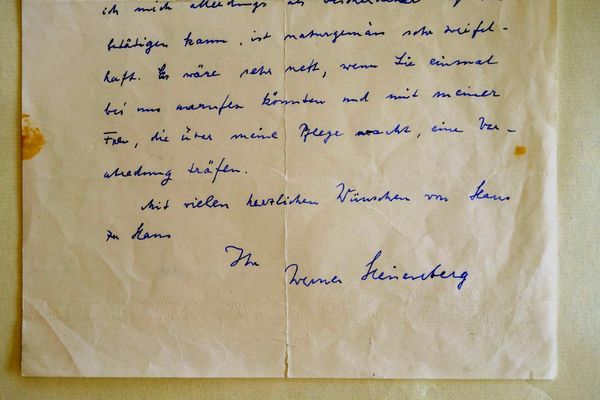 ich mich allerdings als bescheidener
betätigen kann, ist naturgemäss sehr zweifel-
haft. Es wäre sehr nett, wenn Sie einmal
bei uns anrufen könnten und mit meiner
Frau, die über meine Pflege wacht, eine Ver-
abredung träfen.
Mit vielen herzlichen Wünschen von Haus
zu Haus
Ihr
Werner Heisenberg